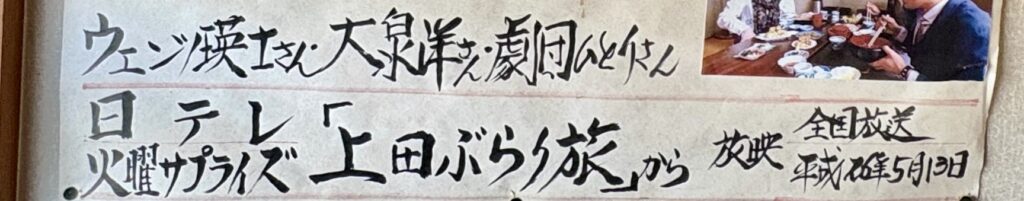 ウエンツ瑛士さん・大泉洋さん・劇団ひとりさん
日テレ
火曜サプライズ「上田ぶらり旅」から 放映
全国放送
平成26年5月13日